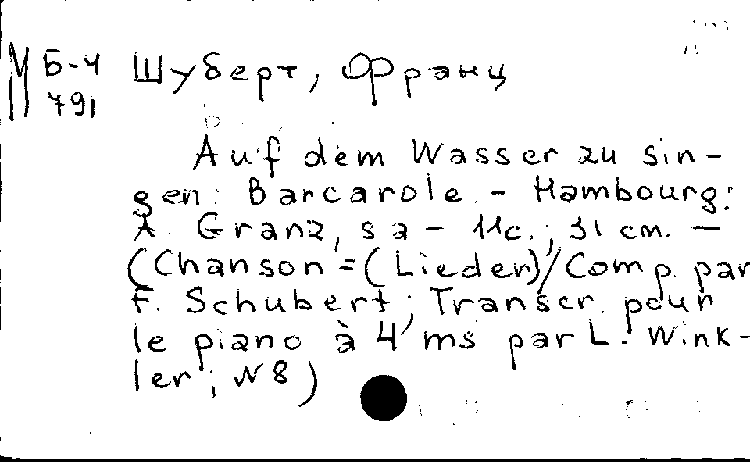 М Б-4 Шуберт, Франц
791
Auf dem Wasser zu sin-
gen: Barcarole. - Hambourg:
A. Granz, s a - 11c.; 31 cm. —
(Chanson = (Lieder)/Comp. par
F. Schubert; Transcr. pour
le piano à 4 ms par L. Wink-
ler; N 8)